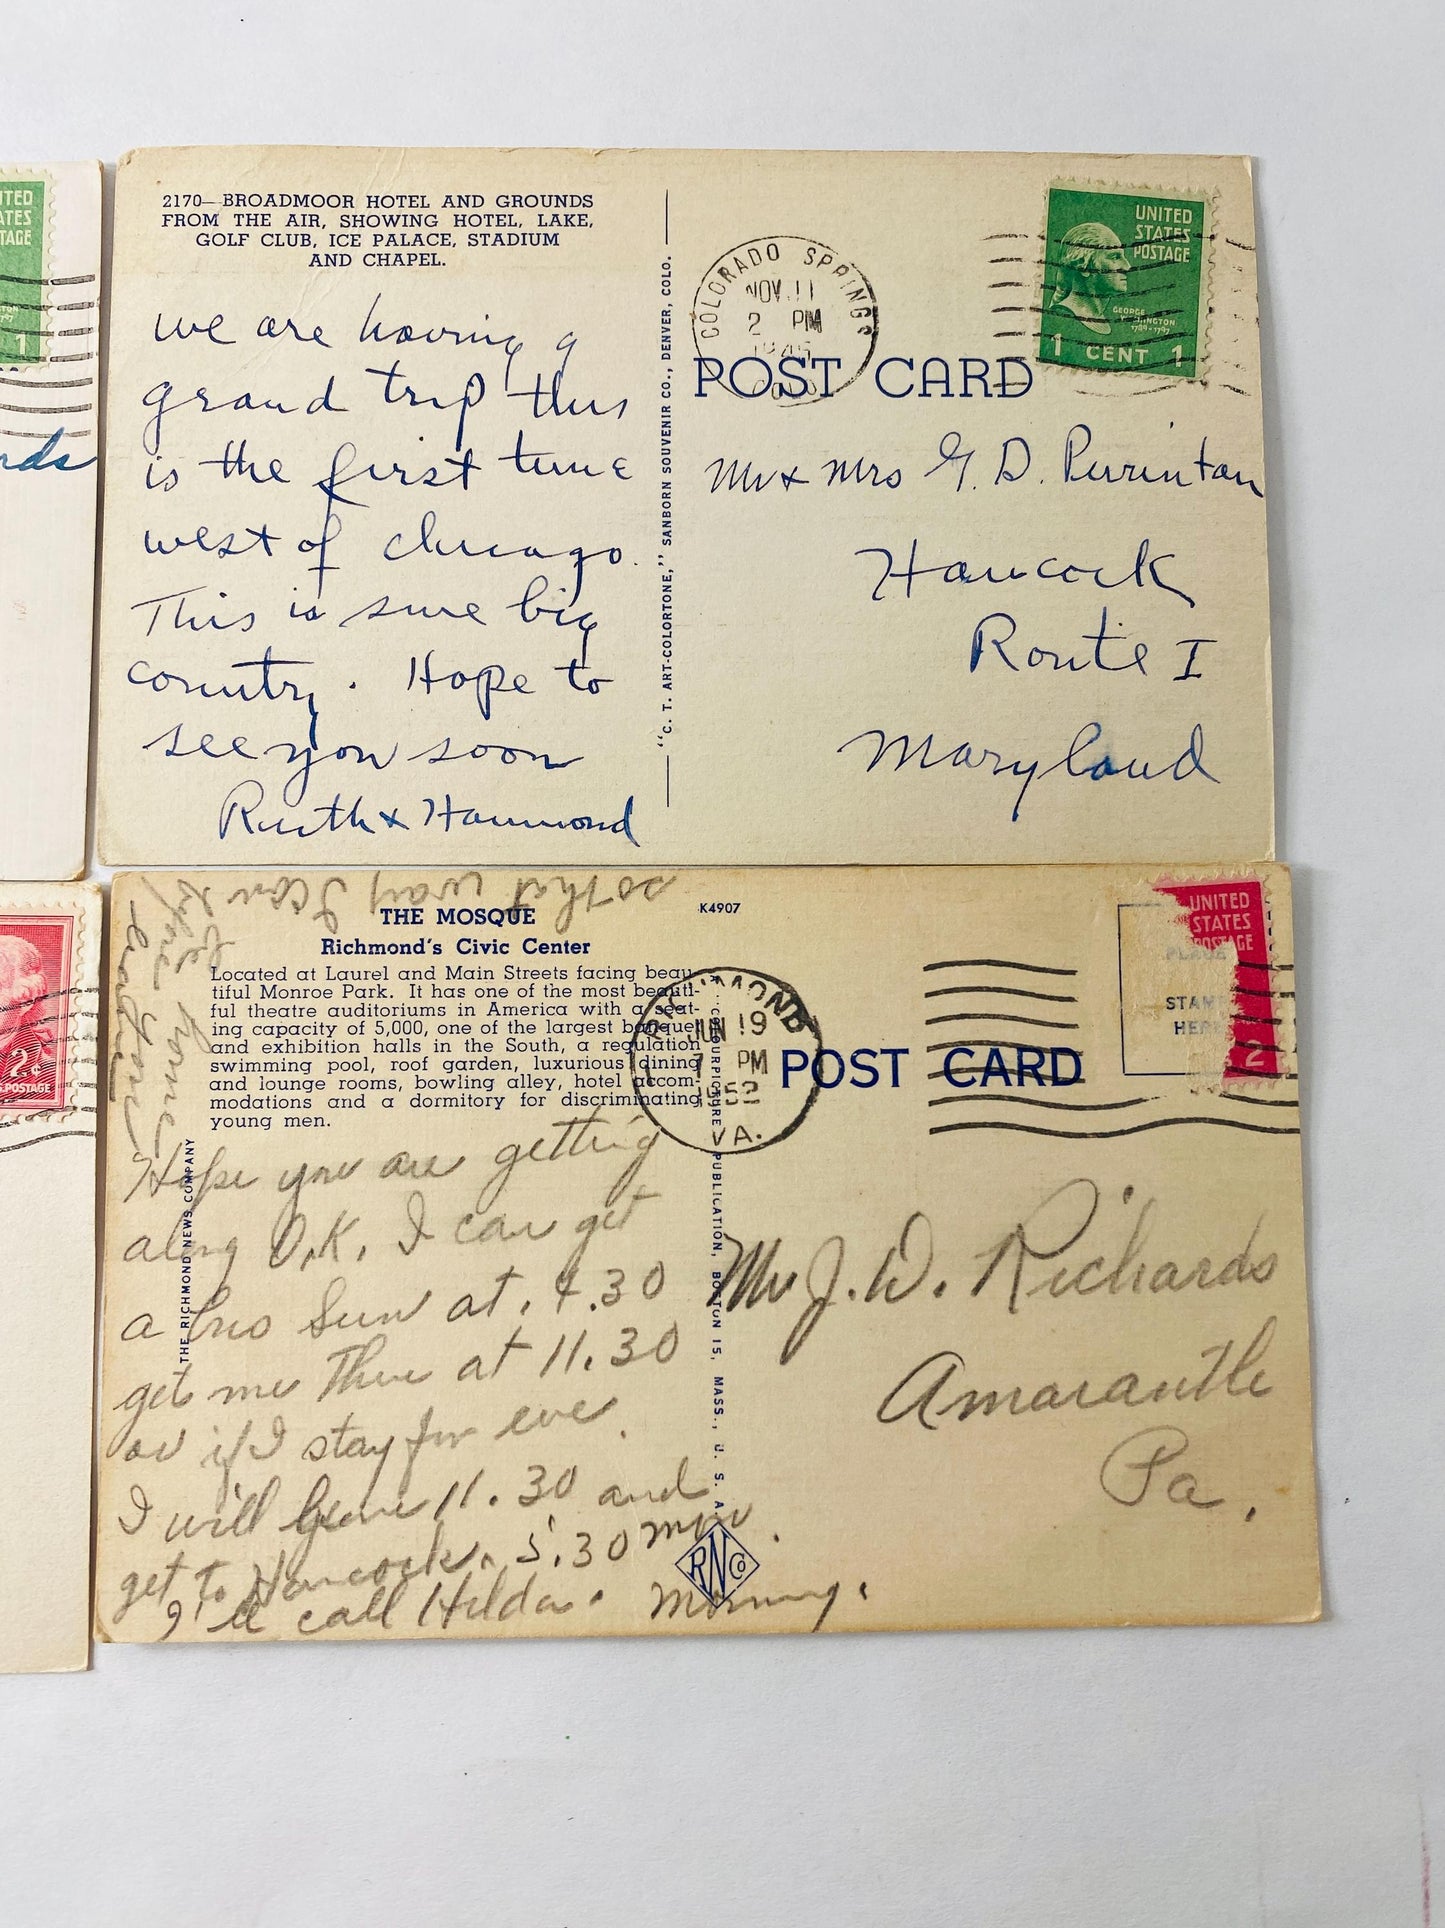 2170—BROADMOOR HOTEL AND GROUNDS
FROM THE AIR, SHOWING HOTEL, LAKE,
GOLF CLUB, ICE PALACE, STADIUM
AND CHAPEL.
we are having a
grand trip this
is the first time
west of Chicago.
This is sure big
country. Hope to
see you soon
Ruth & Hammond
"C. T. ART-COLORTONE," SANBORN SOUVENIR CO., DENVER, COLO.
COLORADO SPRINGS
NOV 11
2 PM
COLO
POST CARD
UNITED
STATES
POSTAGE
GEORGE
WASHINGTON
1789-1797
1 CENT 1
Mr & Mrs G. D. Perrinton
Hancock
Route I
Maryland
ITED
ATES
TAGE
1
rds
2¢
S. POSTAGE
so that way I can
be home
before you
leave
THE MOSQUE
Richmond's Civic Center
Located at Laurel and Main Streets facing beau-
tiful Monroe Park. It has one of the most beauti-
ful theatre auditoriums in America with a seat-
ing capacity of 5,000, one of the largest banquet
and exhibition halls in the South, a regulation
swimming pool, roof garden, luxurious dining
and lounge rooms, bowling alley, hotel accom-
modations and a dormitory for discriminating
young men.
K4907
THE RICHMOND NEWS COMPANY
Hope you are getting
along O.K. I can get
a bus Sun at. 4.30
get me There at 11.30
or if I stay for eve.
I will leave 11.30 and
get to Hancock. 5.30 Mon.
I'll call Hilda. Morning.
COLOURPICTURE PUBLICATION, BOSTON 15, MASS., U. S. A.
RNCo
RICHMOND
JUN 19
7 PM
1952
VA.
POST CARD
PLACE
STAMP
HERE
UNITED
STATES
POSTAGE
2
Mr J. W. Richards
Amaranthe
Pa.